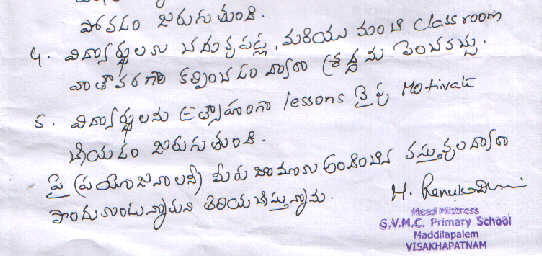 పోవడం జరుగుతుంది.
4. విద్యార్థులలు చదువుపట్ల, మరియు మంచి classroom
వాతావరణం కల్పించడం ద్వారా శ్రద్ధను పెంచవచ్చు.
5. విద్యార్థులను ఉత్సాహంగా lessons వైపు Motivate
చేయడం జరుగుతుంది.
పై ప్రయోజనాలని మీరు అందించిన వస్తువుల ద్వారా
పొందుతున్నామని తెలియచేస్తున్నాను.
Head Mistress
G.V.M.C. Primary School
Maddilapalem
VISAKHAPATNAM